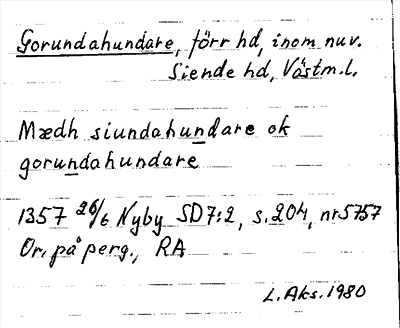 Gorundahundare, förr hd, inom nuv.
Siende hd, Västm.l.
Mædh siundahundare ok
gorundahundare
1357 26/6 Nyby SD7:2, s.204, nr5757
Or. på perg., RA
L.Aks.1980